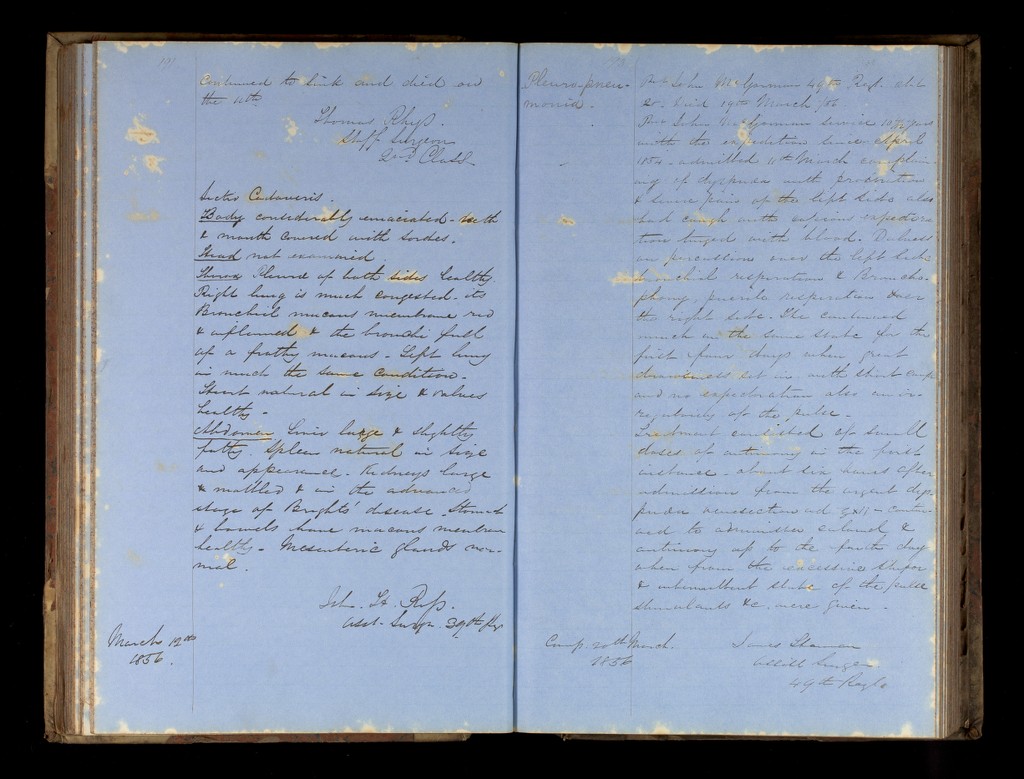 191
Continued to sink and died on
the 11th
Thomas Rhys.
Staff Surgeon
2nd Class
Sectio Cadaveris
Body considerably emaciated - teeth
& mouth covered with sordes.
Head not examined
Thorax Pleura of both sides healthy
Right lung is much congested - its
Bronchial mucous membrane red
& inflamed & the bronchi full
of a frothy mucous - Left lung
in much the same condition -
Heart natural in size & valves
healthy -
Abdomen Liver large & slightly
fatty. Spleen natural in size
and appearance. Kidneys large
& mottled & in the advanced
stage of Brights' disease. Stomach
& bowels have mucous membrane
healthy - Mesenteric glands nor-
mal.
John. Ross.
Asst. Surgn. 39th
March 12th
1856.
Pleuro-pneu-
monia.
John 49th Regt.
Died 19th March /56
John service
with the expedition since April
1854 - admitted 11th March complain-
ing of dyspnœa with prostration
& severe pain of the left side also
had cough with copious expectora-
tion tinged with blood. Dulness
on percussion over the left side
bronchial respiration & Broncho-
phony, puerile respiration over
the right side. He continued
much in the same state for the
first four days when great
drowsiness set in, with short cough
and no expectoration also an ir-
regularity of the pulse -
Treatment consisted of small
doses of antimony in the first
instance - about six hours after
admission from the urgent dys-
pnœa venesection ad - contin-
ued to administer calomel &
antimony up to the fourth day
when from the excessive stupor
& intermittent state of the pulse
stimulants &c. were given -
Camp 20th March.
1856
James
Surgeon
49th Regt